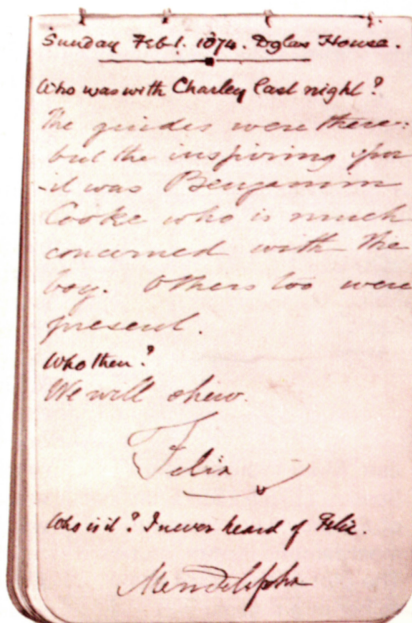 Sunday Feb 1. 1874. Dglas House.
Who was with Charley last night?
The guides were there:
but the inspiring spir
-it was Benjamin
Cooke who is much
concerned with the
boy. Others too were
present.
Who then?
We will shew.
Felix
Who is it? I never heard of Felix.